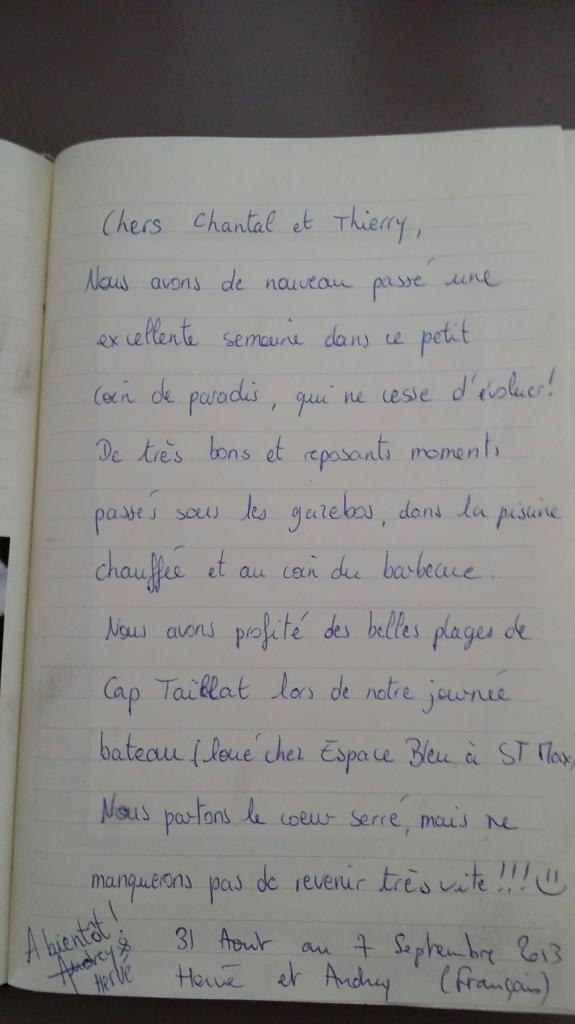 Chers Chantal et Thierry,
Nous avons de nouveau passé une
excellente semaine dans ce petit
coin de paradis, qui ne cesse d'évoluer!
De très bons et reposants moments
passés sous les gazebos, dans la piscine
chauffée et au coin du barbecue.
Nous avons profité des belles plages de
Cap Taillat lors de notre journée
bateau (loué chez Espace Bleu à ST Max)
Nous partons le coeur serré, mais ne
manquerons pas de revenir très vite!!! :)
A bientôt!
Audrey &
Hervé
31 Aout au 7 Septembre 2013
Hervé et Audrey (Français)